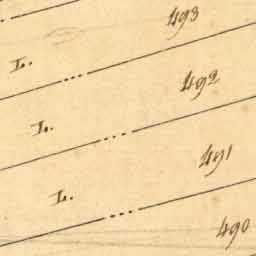 493
L.
492
L.
491
L.
490